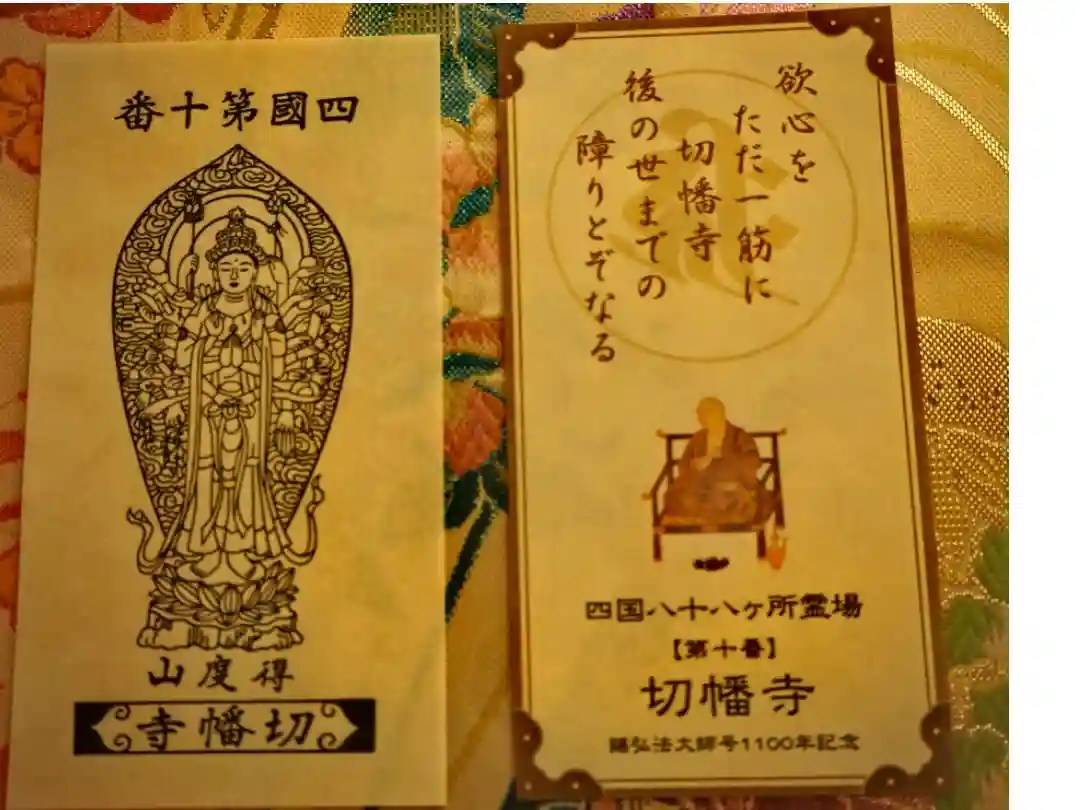 四國第十番
得度山
切幡寺
欲心を
ただ一筋に
切幡寺
後の世までの
障りとぞなる
四国八十八ヶ所霊場
【第十番】
切幡寺
賜弘法大師号1100年記念